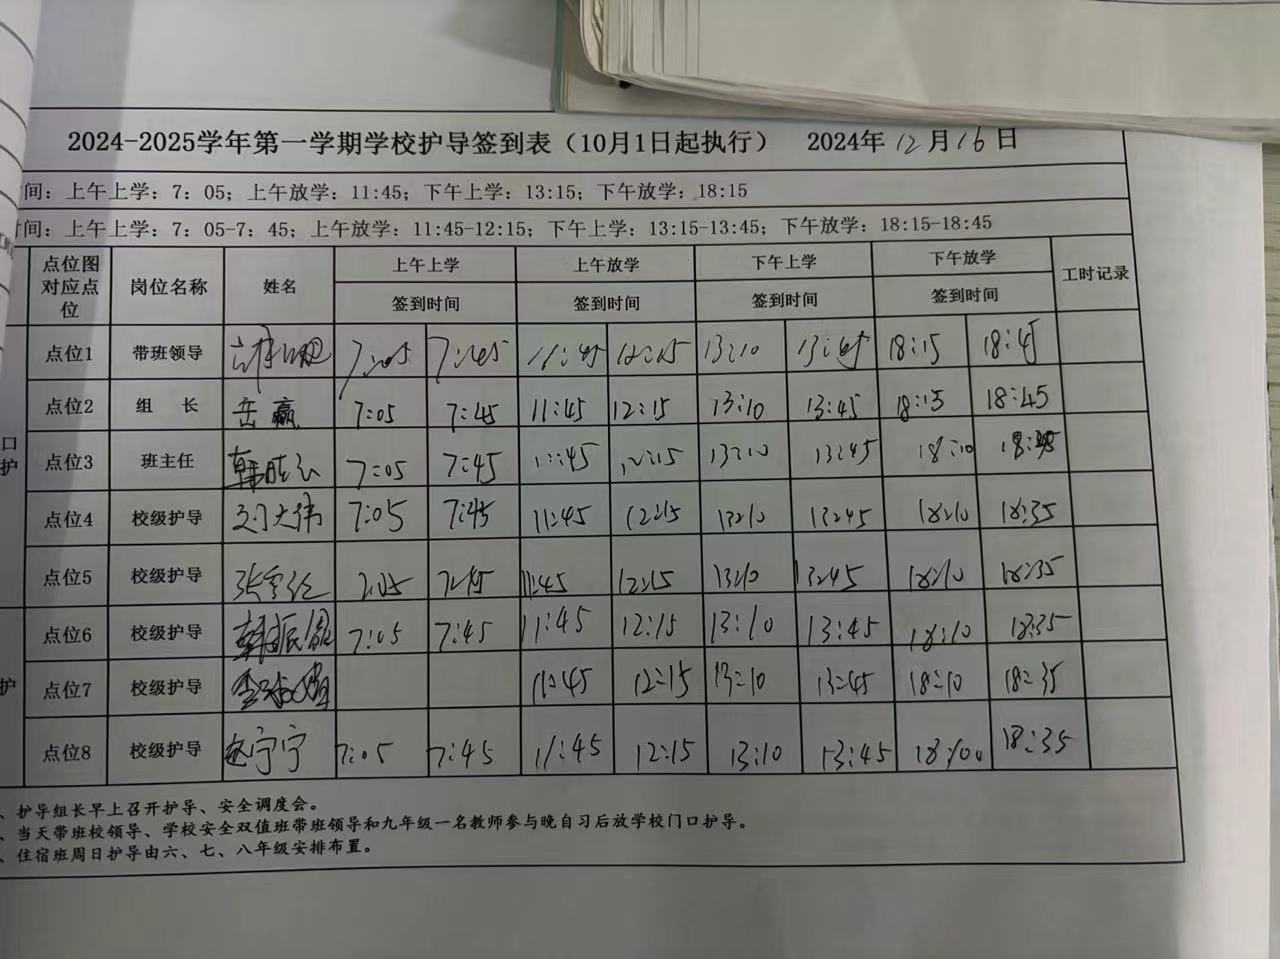 2024-2025学年第一学期学校护导签到表（10月1日起执行） 2024年12月16日
间：上午上学：7：05；上午放学：11:45；下午上学：13:15；下午放学：18:15
时间：上午上学：7：05-7：45；上午放学：11:45-12:15；下午上学：13:15-13:45；下午放学：18:15-18:45
点位图对应点位 岗位名称 姓名 上午上学 上午放学 下午上学 下午放学 工时记录
签到时间 签到时间 签到时间 签到时间
点位1 带班领导 7:05 7:45 11:45 12:15 13:10 13:45 18:15 18:45
点位2 组长 岳赢 7:05 7:45 11:45 12:15 13:10 13:45 18:15 18:45
口护
点位3 班主任 7:05 7:45 11:45 12:15 13:10 13:45 18:10 18:35
点位4 校级护导 刘大伟 7:05 7:45 11:45 12:15 13:10 13:45 18:10 18:35
点位5 校级护导 7:05 7:45 11:45 12:15 13:10 13:45 18:10 18:35
点位6 校级护导 7:05 7:45 11:45 12:15 13:10 13:45 18:10 18:35
护 点位7 校级护导 11:45 12:15 13:10 13:45 18:10 18:35
点位8 校级护导 赵宁宁 7:05 7:45 11:45 12:15 13:10 13:45 18:35
、护导组长早上召开护导、安全调度会。
、当天带班校领导、学校安全双值班带班领导和九年级一名教师参与晚自习后放学校门口护导。
、住宿班周日护导由六、七、八年级安排布置。